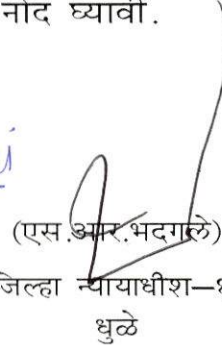 नोंद घ्यावी.
(एस.आर.भदगले)
जिल्हा न्यायाधीश–१
धुळे